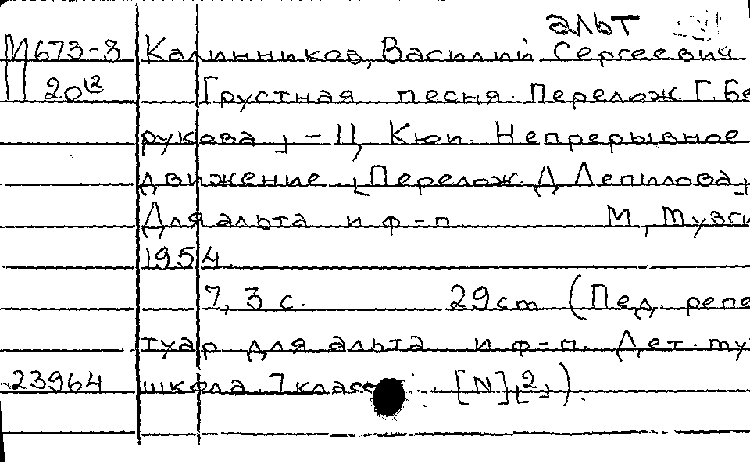 альт
М673-8 Калинников, Василий Сергеевич
20 12 Грустная песня. Перелож. Г. Бе
рукова, - II, Кюи. Непрерывное
движение. [Перелож. Д. Лепилова]
Для альта и ф-п М, Музги
1954.
7, 3 с. 29cm (Пед. репе
туар для альта и ф-п. Дет. му
23964 школа. 7 класс. [N] [2]).